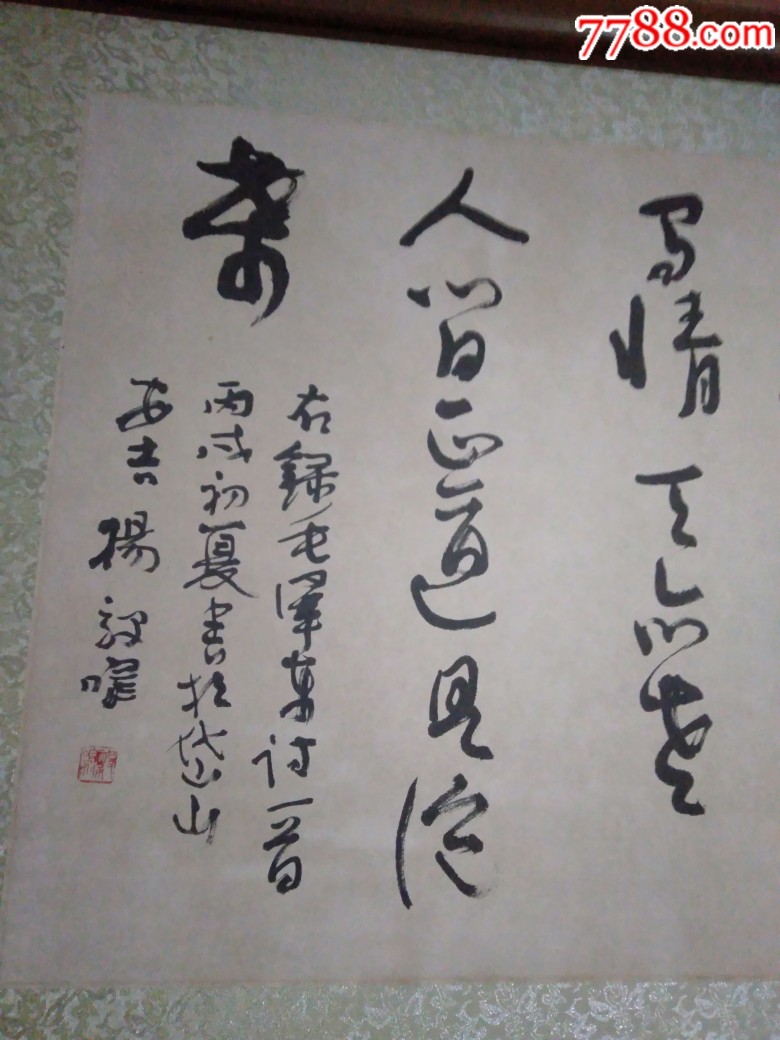 7788.com
有情天亦老
人間正道是滄
桑
右錄毛澤東詩一首
丙戌初夏書於岱山
安吉楊